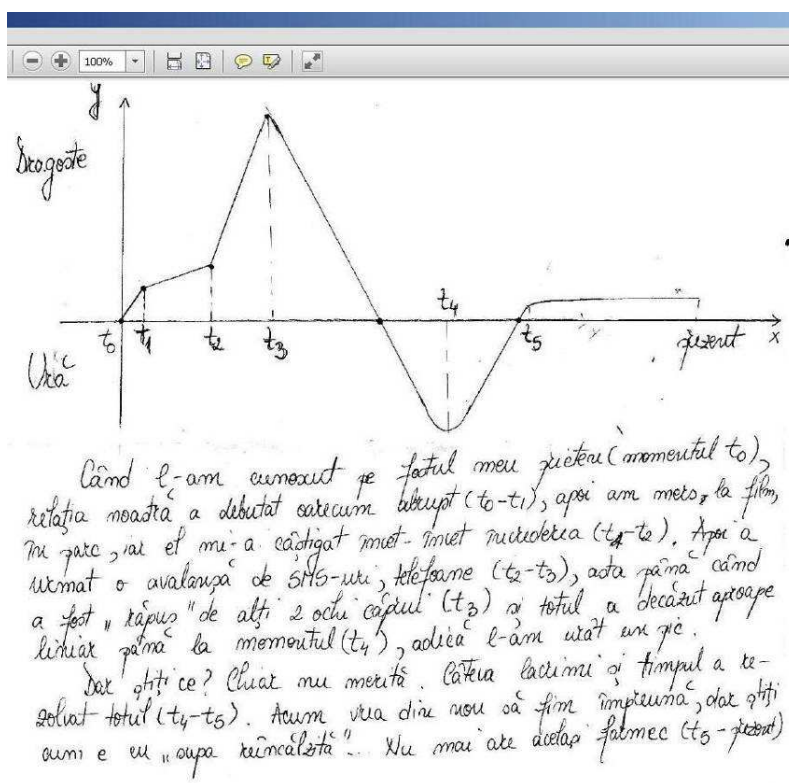 100%
y
Dragoste
t₀ t₁ t₂ t₃ t₄ t₅ prezent x
Ură
Când l-am cunoscut pe fostul meu prieten (momentul t₀),
relația noastră a debutat oarecum abrupt (t₀-t₁), apoi am mers, la film,
în parc, iar el mi-a câștigat încet-încet încrederea (t₁-t₂). Apoi a
urmat o avalanșă de SMS-uri, telefoane (t₂-t₃), asta până când
a fost „răpus" de alți 2 ochi căprui (t₃) și totul a decăzut aproape
liniar până la momentul (t₄), adică l-am urât un pic.
Dar știți ce? Chiar nu merită. Câteva lacrimi și timpul a re-
zolvat totul (t₄-t₅). Acum vrea din nou să fim împreună, dar știți
cum e cu „supa reîncălzită"... Nu mai are același farmec (t₅-prezent)